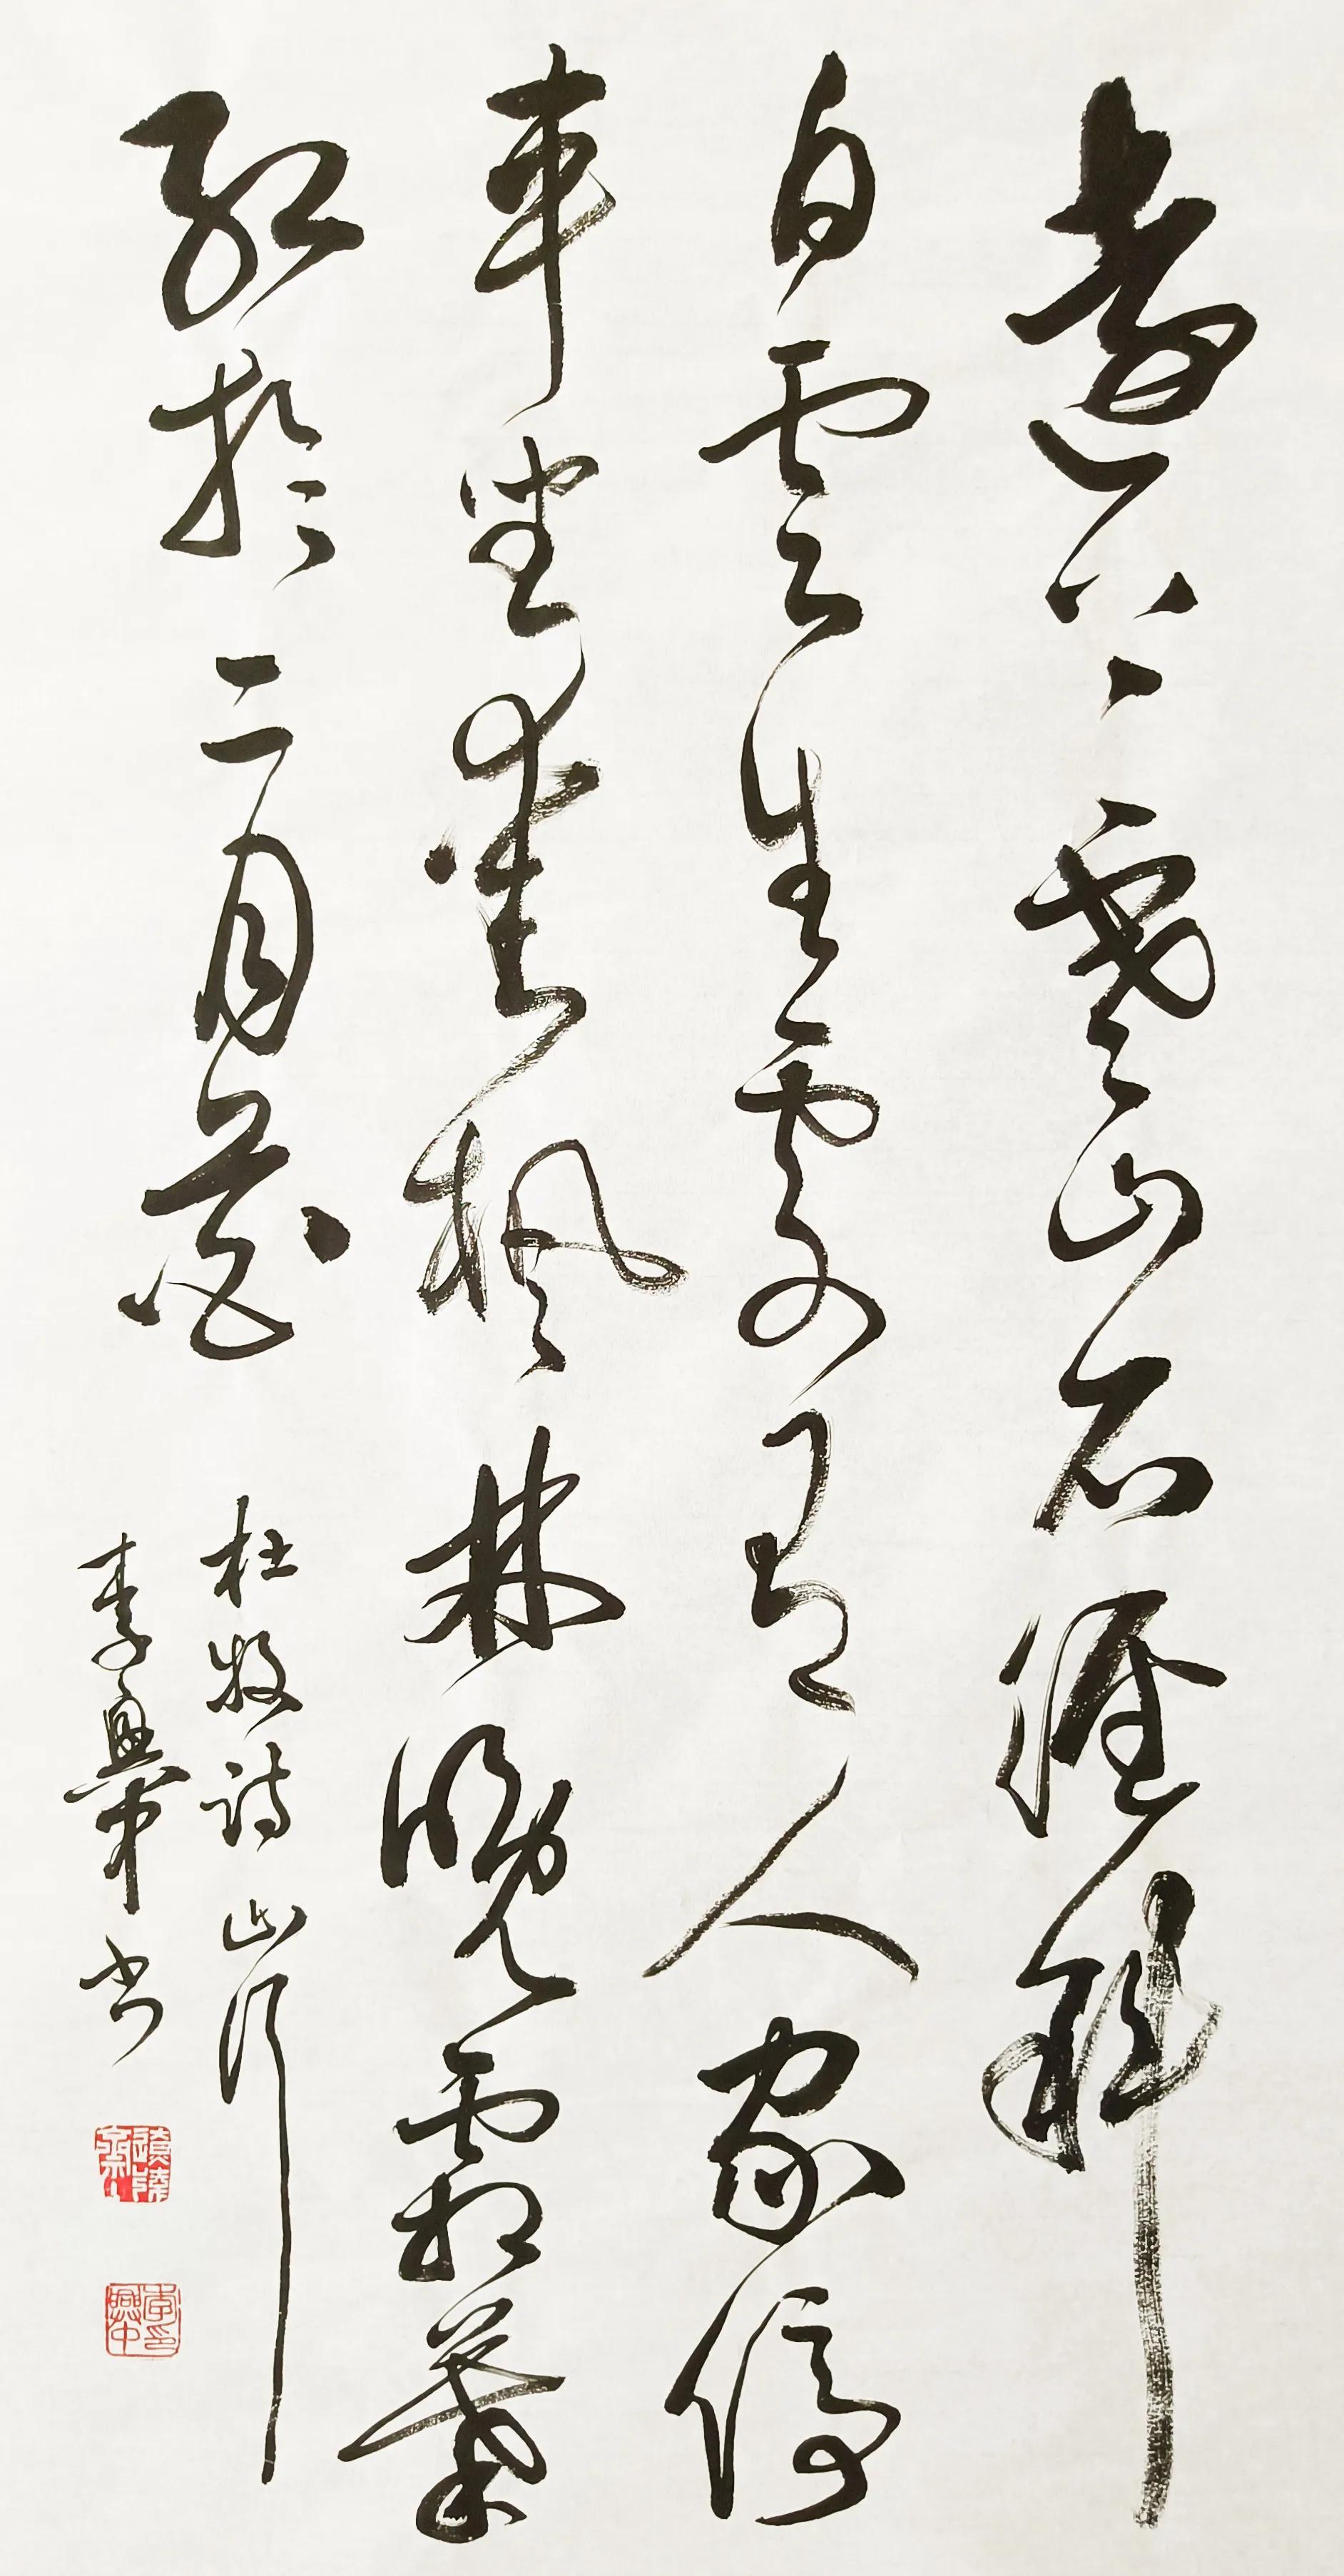 遠上寒山石徑斜
白雲生處有人家停
車坐愛楓林晚霜葉
紅於二月花
杜牧詩山行
李興中書
李印興中